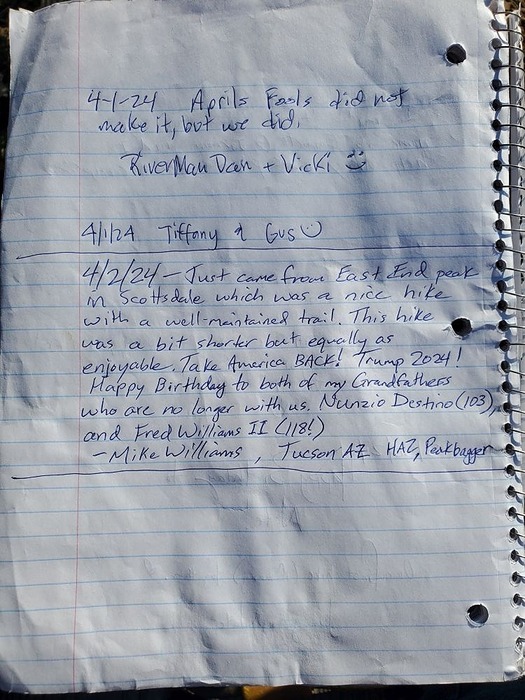 4-1-24 Aprils Fools did not
make it, but we did.
RiverMan Dan + Vicki
4/1/24 Tiffany & Gus
4/2/24 - Just came from East End peak
in Scottsdale which was a nice hike
with a well-maintained trail. This hike
was a bit shorter but equally as
enjoyable. Take America BACK! Trump 2024!
Happy Birthday to both of my Grandfathers
who are no longer with us, Nunzio Destino (103),
and Fred Williams II (118!)
- Mike Williams, Tucson AZ HAZ, Peakbagger